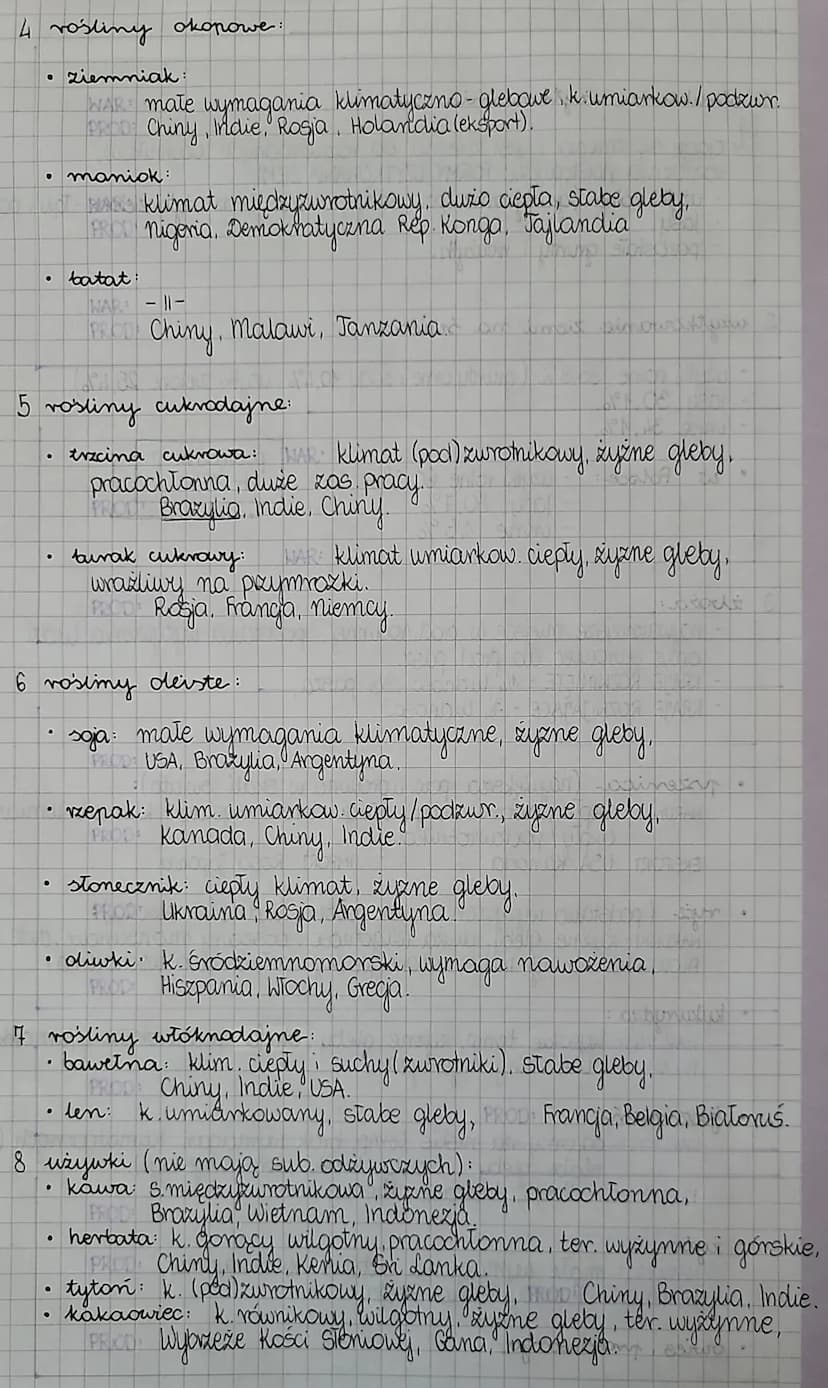 4 rośliny okopowe:
• ziemniak:
WAR: małe wymagania klimatyczno-glebowe, k. umiarkow./podzwr.
PROD: Chiny, Indie, Rosja, Holandia (eksport).
• maniok:
WAR: klimat międzyzwrotnikowy, dużo ciepła, słabe gleby,
PROD: Nigeria, Demokratyczna Rep. Konga, Tajlandia
• batat:
WAR: -||-
PROD: Chiny, Malawi, Tanzania.
5 rośliny cukrodajne:
• trzcina cukrowa: WAR: klimat (pod)zwrotnikowy, żyzne gleby,
pracochłonna, duże zas. pracy.
PROD: Brazylia, Indie, Chiny.
• burak cukrowy: WAR: klimat umiarkow. ciepły, żyzne gleby,
wrażliwy na przymrozki.
PROD: Rosja, Francja, Niemcy.
6 rośliny oleiste:
• soja: małe wymagania klimatyczne, żyzne gleby,
PROD: USA, Brazylia, Argentyna.
• rzepak: klim. umiarkow. ciepły/podzwr., żyzne gleby,
PROD: Kanada, Chiny, Indie.
• słonecznik: ciepły klimat, żyzne gleby.
PROD: Ukraina, Rosja, Argentyna.
• oliwki: k. śródziemnomorski, wymaga nawożenia,
PROD: Hiszpania, Włochy, Grecja.
7 rośliny włóknodajne:
• bawełna: klim. ciepły i suchy (zwrotniki), słabe gleby,
PROD: Chiny, Indie, USA.
• len: k. umiarkowany, słabe gleby, PROD: Francja, Belgia, Białoruś.
8 używki (nie mają sub. odżywczych):
• kawa: s. międzyzwrotnikowa, żyzne gleby, pracochłonna,
PROD: Brazylia, Wietnam, Indonezja.
• herbata: k. gorący wilgotny, pracochłonna, ter. wyżynne i górskie,
PROD: Chiny, Indie, Kenia, Sri Lanka.
• tytoń: k. (pod)zwrotnikowy, żyzne gleby, PROD: Chiny, Brazylia, Indie.
• kakaowiec: k. równikowy, wilgotny, żyzne gleby, ter. wyżynne,
PROD: Wybrzeże Kości Słoniowej, Gana, Indonezja.